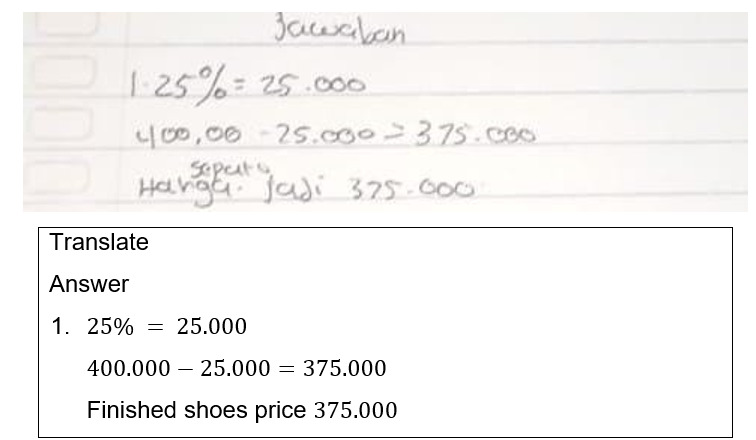 Jawaban
1. 25% = 25.000
400,00 - 25.000 = 375.000
sepatu
Harga. jadi 375.000
Translate
Answer
1. 25% = 25.000
400.000 − 25.000 = 375.000
Finished shoes price 375.000